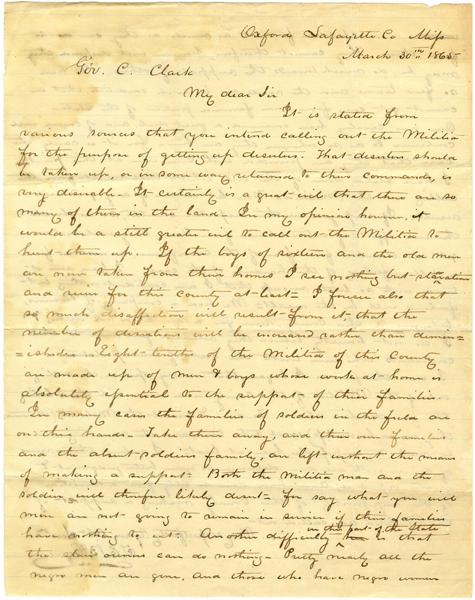 Oxford Lafayette. Co Miss
March 30th 1865
Gov. C. Clark
My dear Sir
It is stated from
various sources that you intend calling out the Militia
for the purpose of getting up deserters. That deserters should
be taken up, or in some way returned to their commands, is
very desirable - It certainly is a great evil that there are so
many of them in the land - In my opinion however, it
would be a still greater evil to call out the Militia to
hunt them up. If the boys of sixteen and the old men
are now taken from their homes I see nothing but starvation
and ruin for this county at least - I foresee also that
so much disaffection will result from it, that the
number of desertions will be increased rather than demin=
=ished - Eight-tenths of the Militia of this County
are made up of men & boys whose work at home is
absolutely essential to the support of their families
In many cases the families of soldiers in the field are
on their hands - Take them away, and their own families
and the absent soldiers family, are left without the means
of making a support - Both the Militia man and the
soldier will therefore likely desert - for say what you will
men are not going to remain in service if their families
have nothing to eat. Another difficulty in this part of the State is that
the slave owners can do nothing - Pretty nearly all the
negro men are gone, and those who have negro women